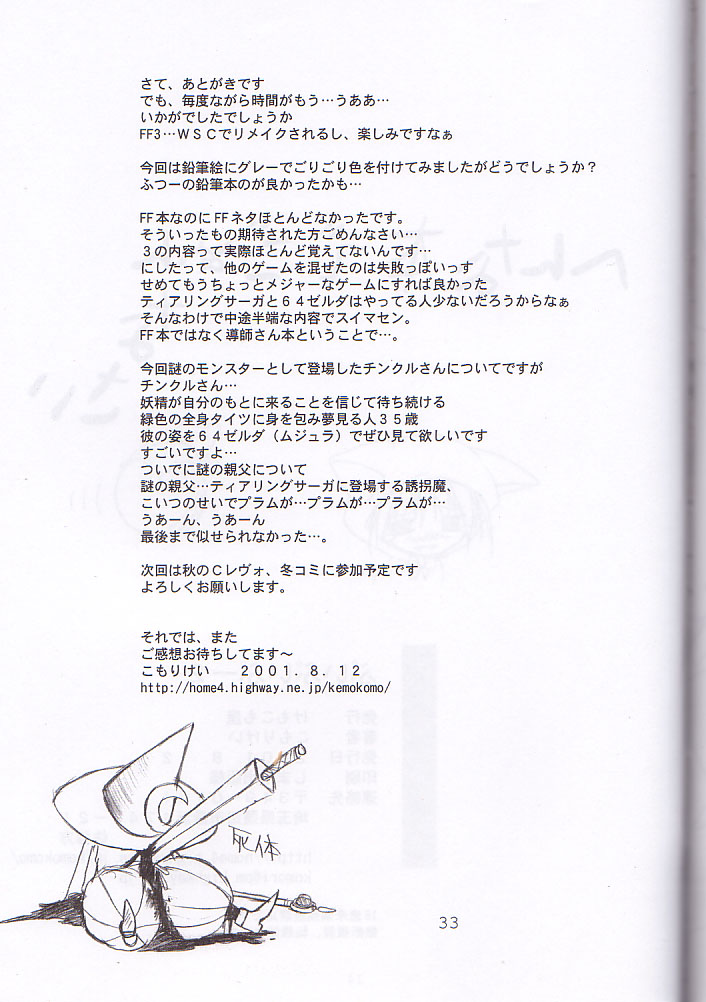 さて、あとがきです
でも、毎度ながら時間がもう…うああ…
いかがでしたでしょうか
FF3…ＷＳＣでリメイクされるし、楽しみですなぁ
今回は鉛筆絵にグレーでごりごり色を付けてみましたがどうでしょうか？
ふつーの鉛筆本のが良かったかも…
FF本なのにFFネタほとんどなかったです。
そういったもの期待された方ごめんなさい…
３の内容って実際ほとんど覚えてないんです…
にしたって、他のゲームを混ぜたのは失敗っぽいっす
せめてもうちょっとメジャーなゲームにすれば良かった
ティアリングサーガと６４ゼルダはやってる人少ないだろうからなぁ
そんなわけで中途半端な内容でスイマセン。
FF本ではなく導師さん本ということで…。
今回謎のモンスターとして登場したチンクルさんについてですが
チンクルさん…
妖精が自分のもとに来ることを信じて待ち続ける
緑色の全身タイツに身を包み夢見る人３５歳
彼の姿を６４ゼルダ（ムジュラ）でぜひ見て欲しいです
すごいですよ…
ついでに謎の親父について
謎の親父…ティアリングサーガに登場する誘拐魔、
こいつのせいでプラムが…プラムが…プラムが…
うあーん、うあーん
最後まで似せられなかった…。
次回は秋のＣレヴォ、冬コミに参加予定です
よろしくお願いします。
それでは、また
ご感想お待ちしてます～
こもりけい　２００１．８．１２
http://home4.highway.ne.jp/kemokomo/
死体
33